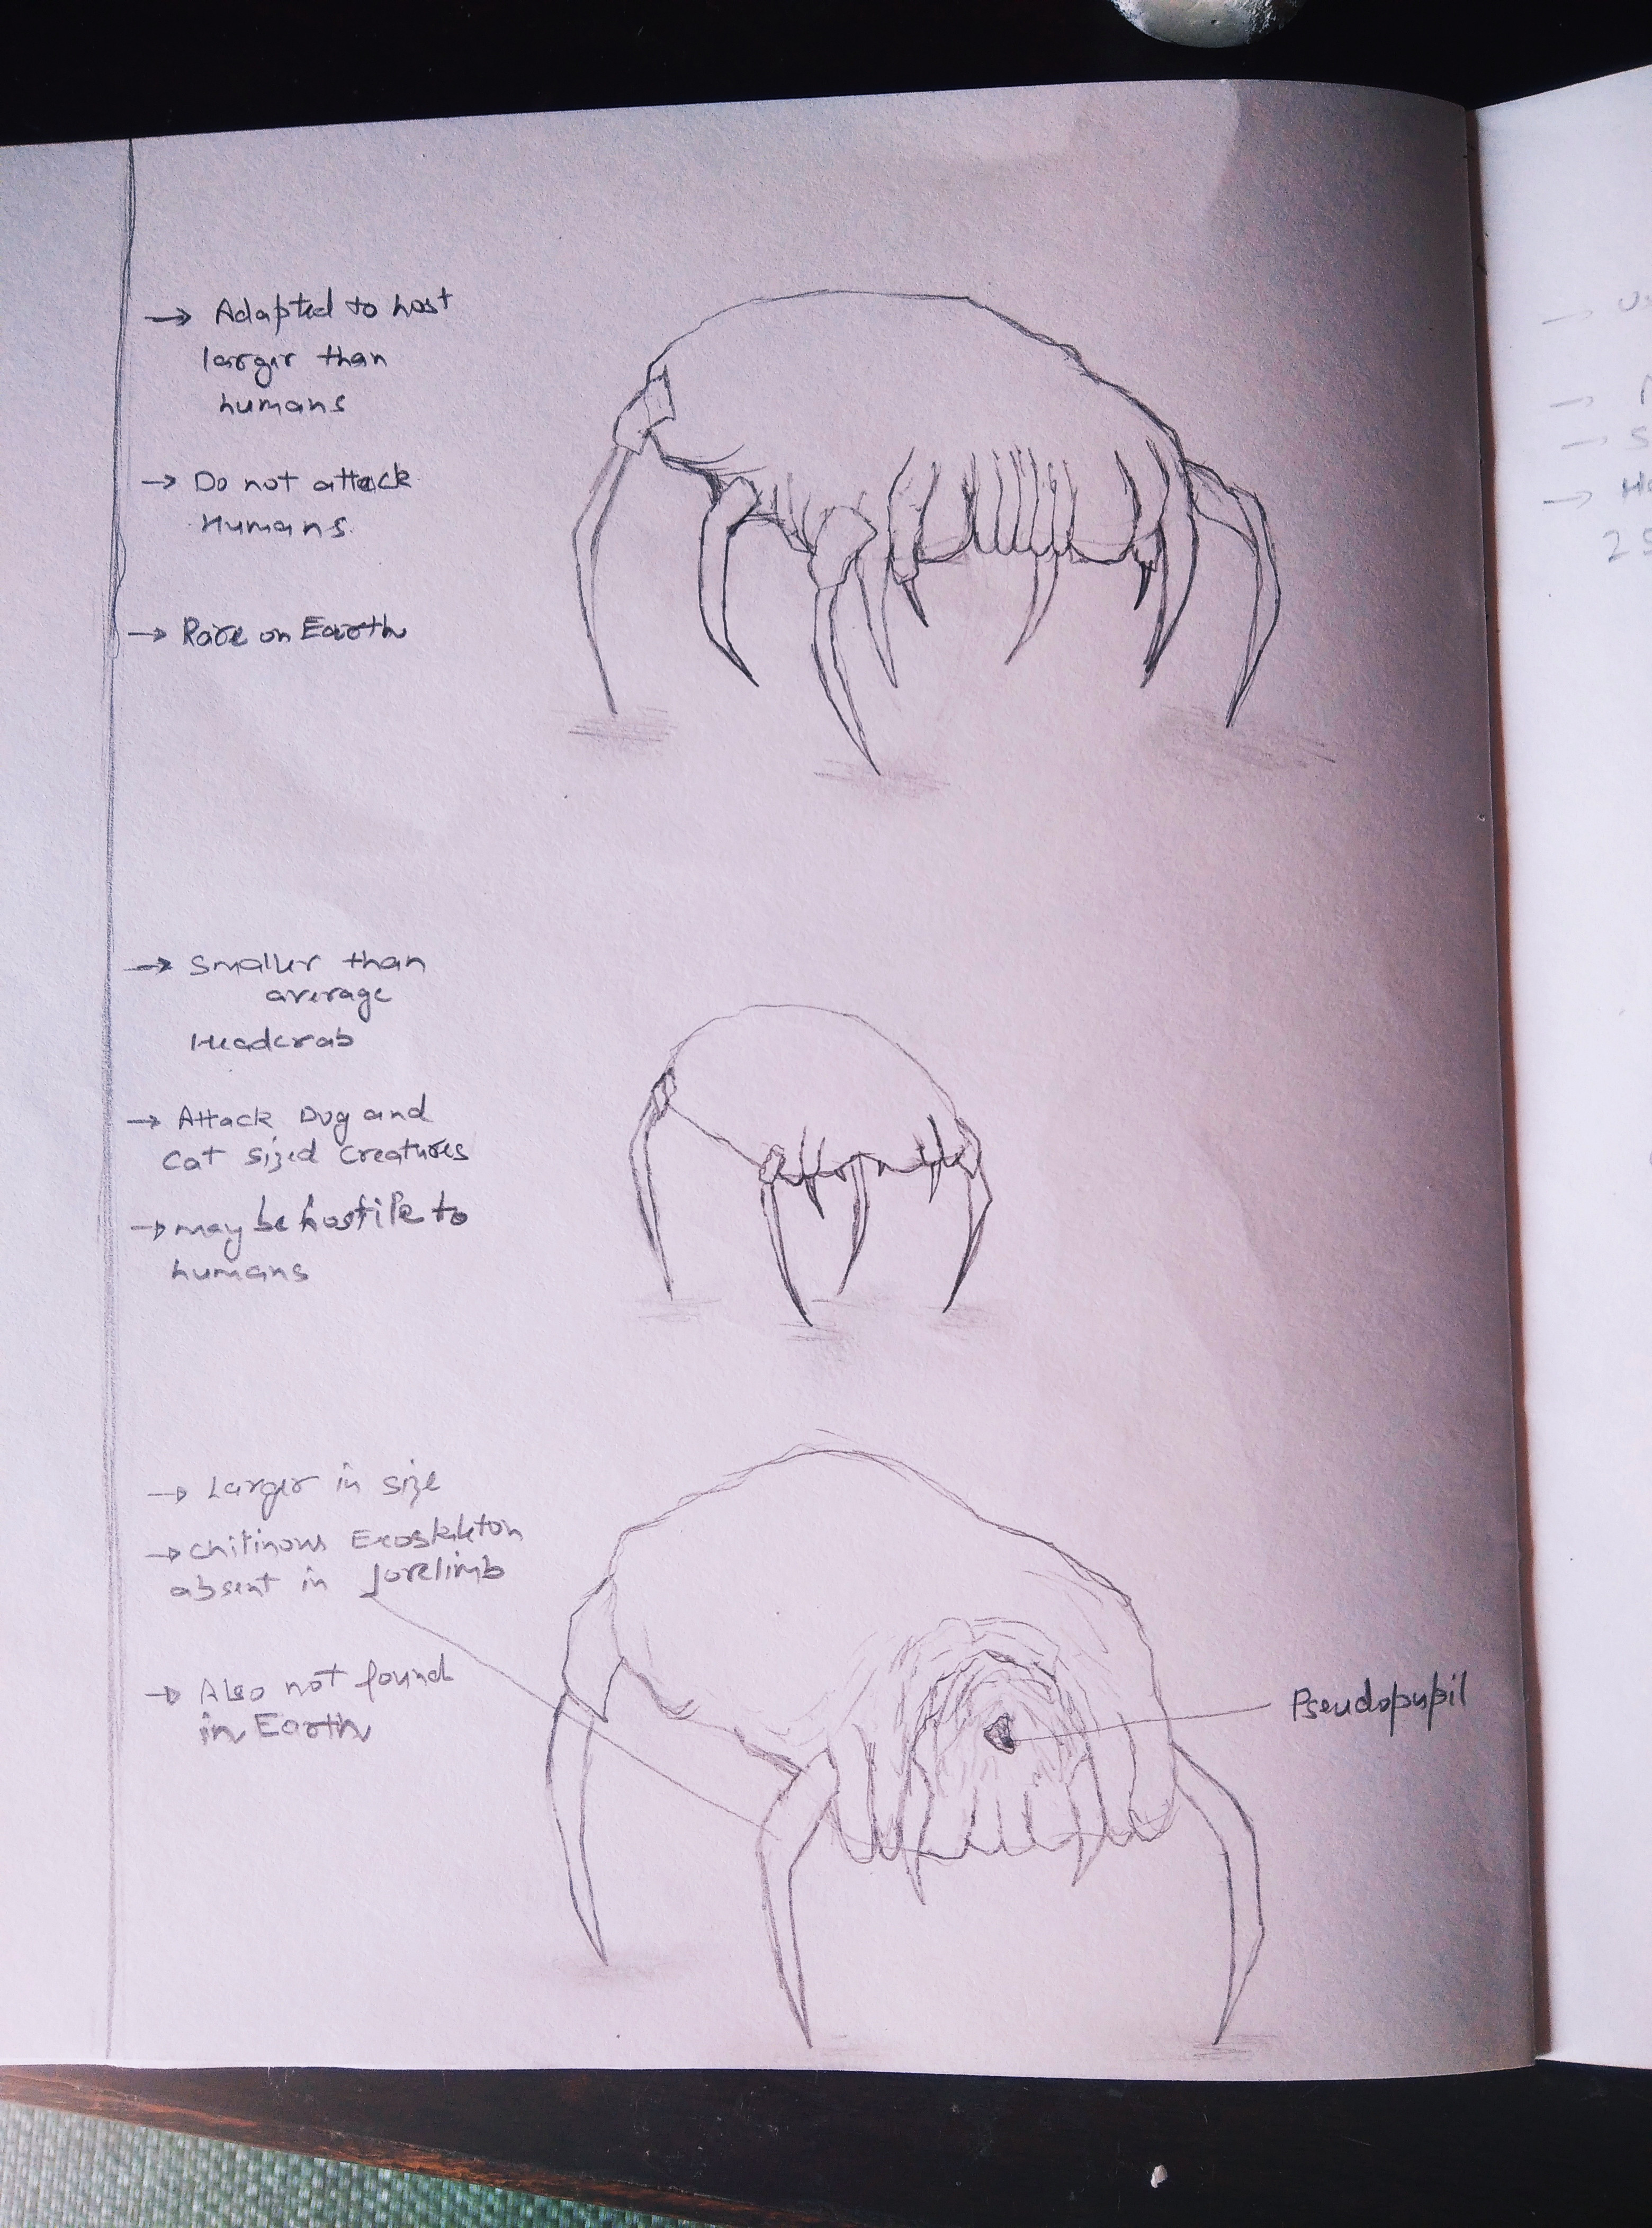 → Adapted to host
larger than
humans
→ Do not attack
Humans.
→ Rare on Earth
→ Smaller than
average
Headcrab
→ Attack Dog and
Cat sized creatures
→ may be hostile to
humans
→ Larger in size
→ chitinous Exoskeleton
absent in forelimb
→ Also not found
in Earth
Pseudopupil